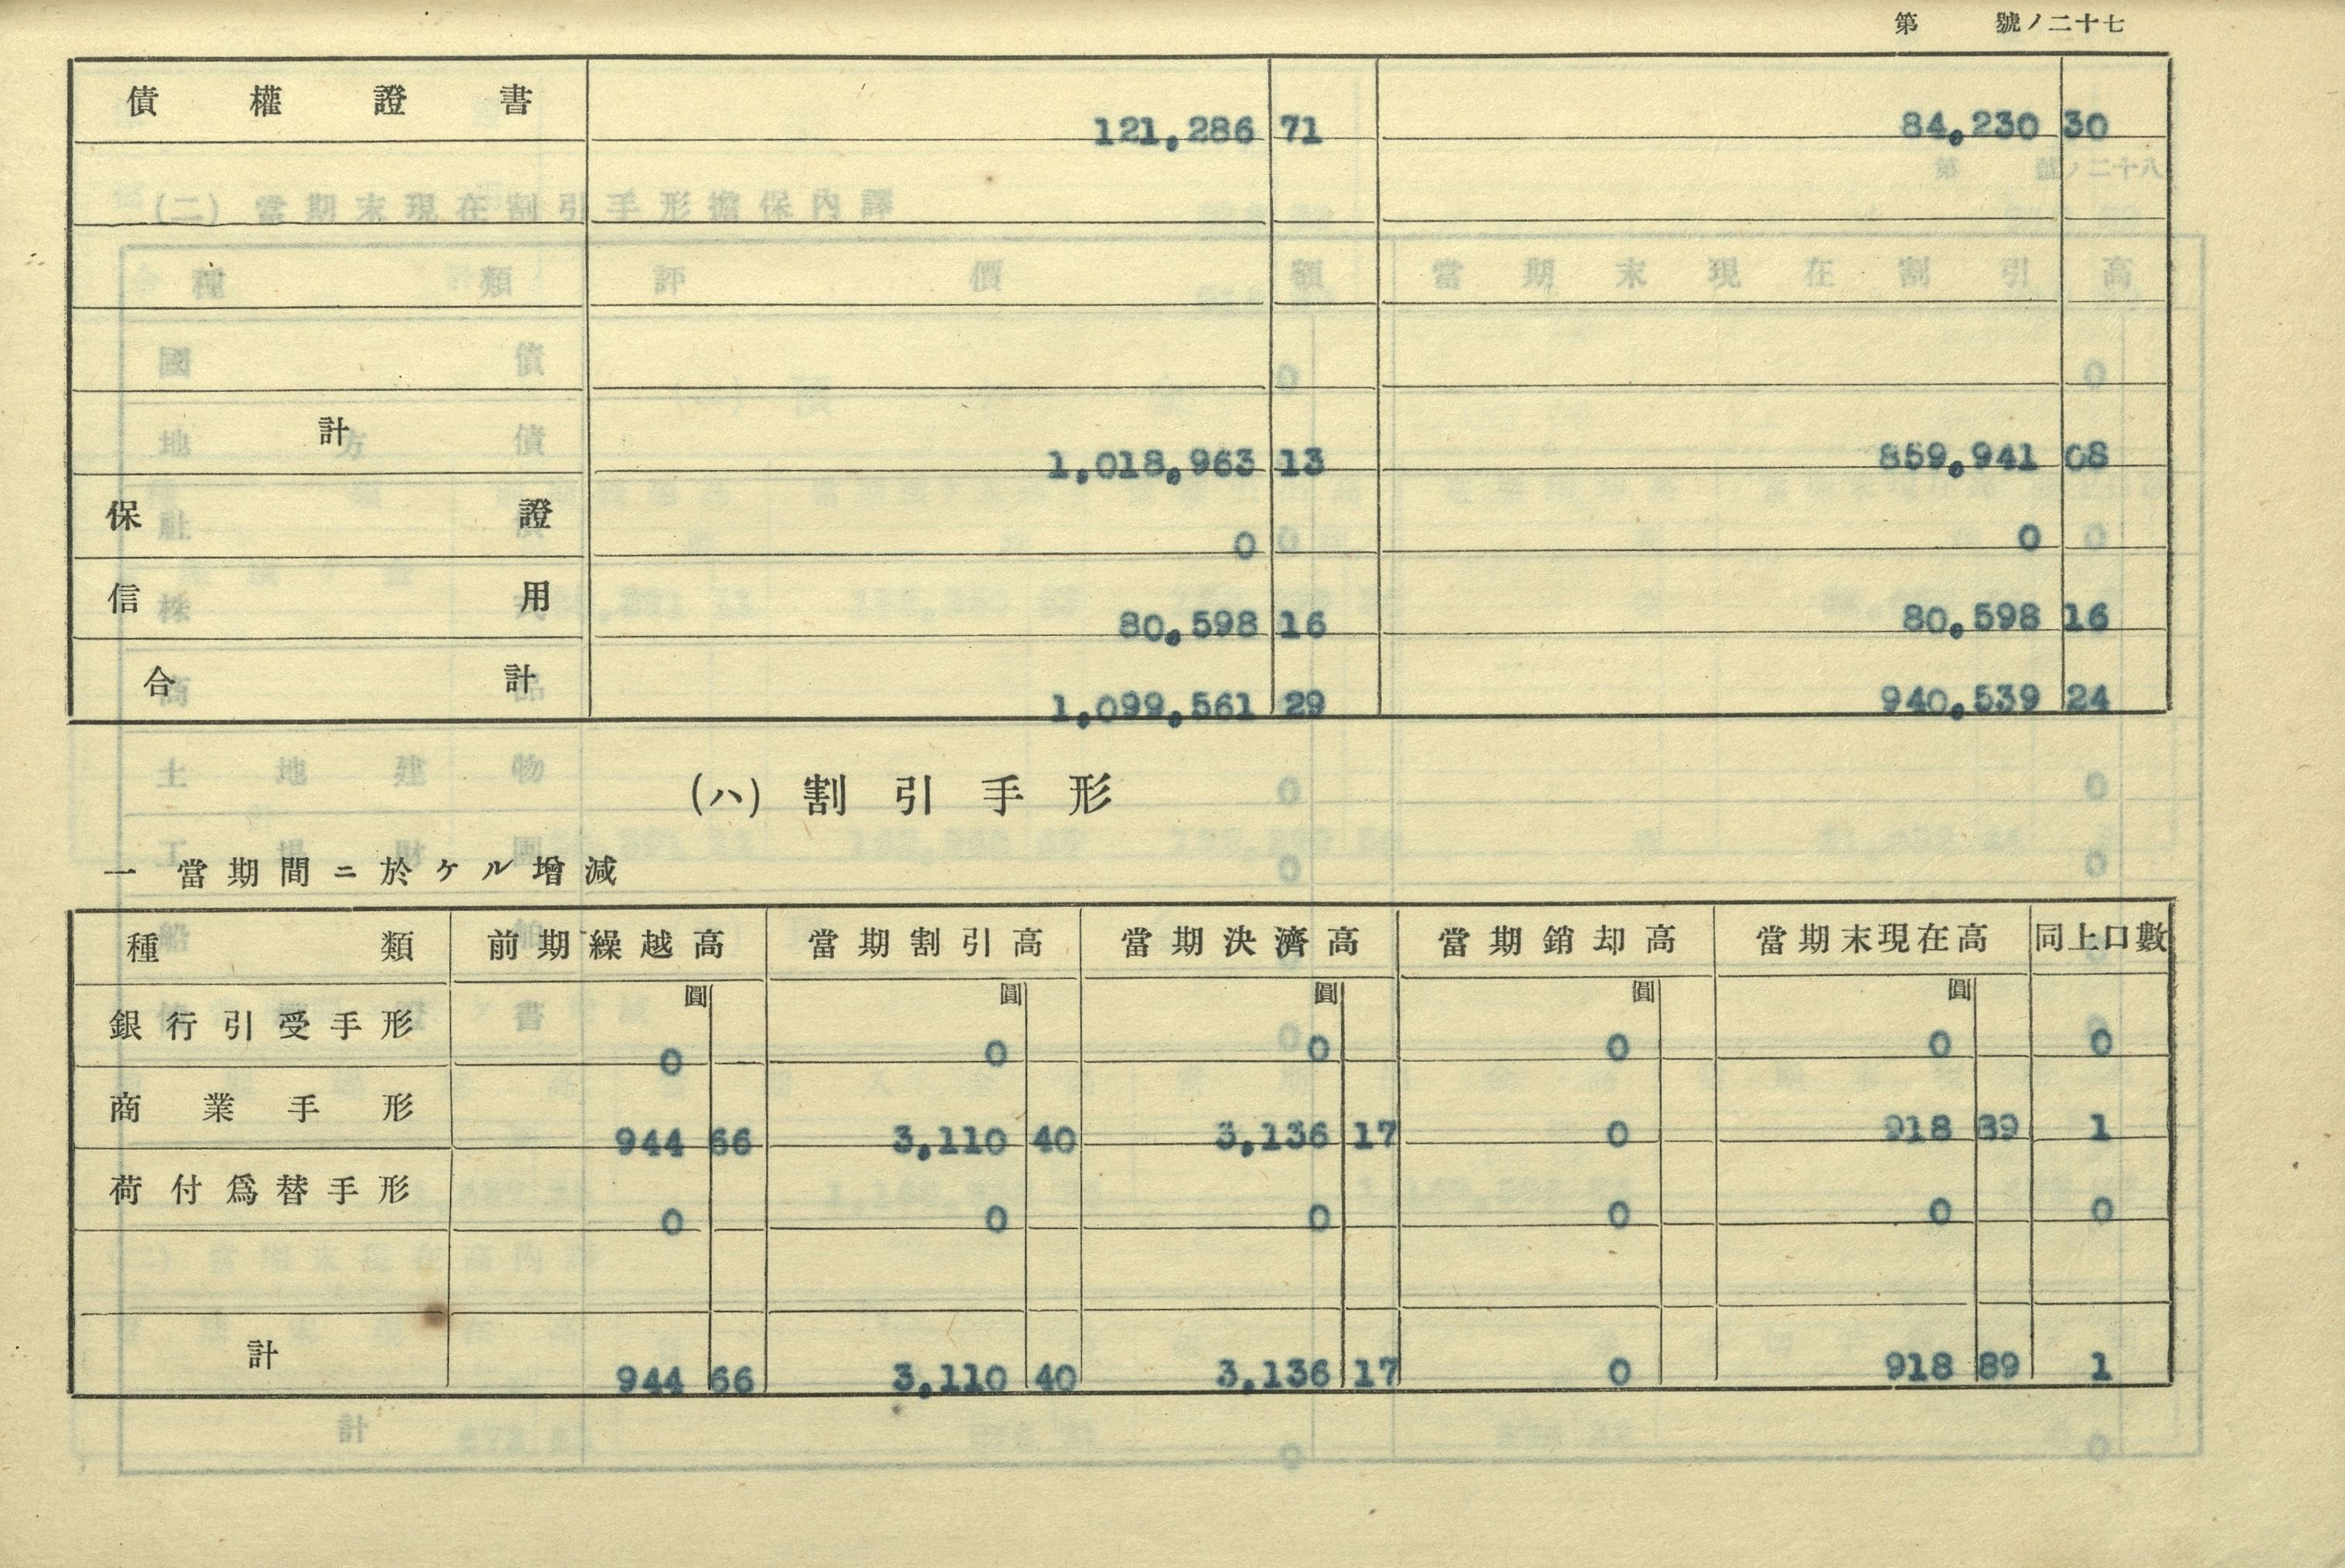 第 號ノ二十七
債權證書 121,286 71 84,230 30
計 1,018,963 13 859,941 08
保證 0 0
信用 80,598 16 80,598 16
合計 1,099,561 29 940,539 24
(ハ) 割引手形
一 當期間ニ於ケル增減
種類 前期繰越高 當期割引高 當期決濟高 當期銷却高 當期末現在高 同上口數
圓 圓 圓 圓 圓
銀行引受手形 0 0 0 0 0 0
商業手形 944 66 3,110 40 3,136 17 0 918 89 1
荷付爲替手形 0 0 0 0 0 0
計 944 66 3,110 40 3,136 17 0 918 89 1